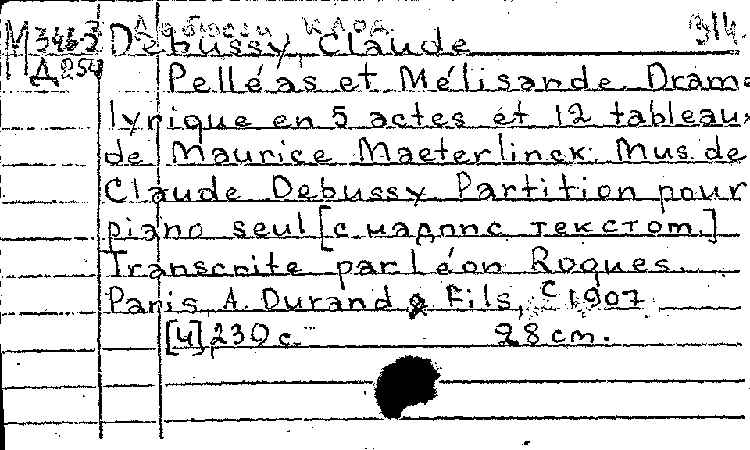 Дебюсси, Клод 314.
М 346-3 Debussy, Claude
Д 254
Pelléas et Mélisande. Drame
lyrique en 5 actes et 12 tableaux
de Maurice Maeterlinck. Mus. de
Claude Debussy Partition pour
piano seul [с надпис текстом.]
Transcrite par Léon Roques.
Paris, A. Durand & Fils, c 1907
[4], 230 с. 28 cm.